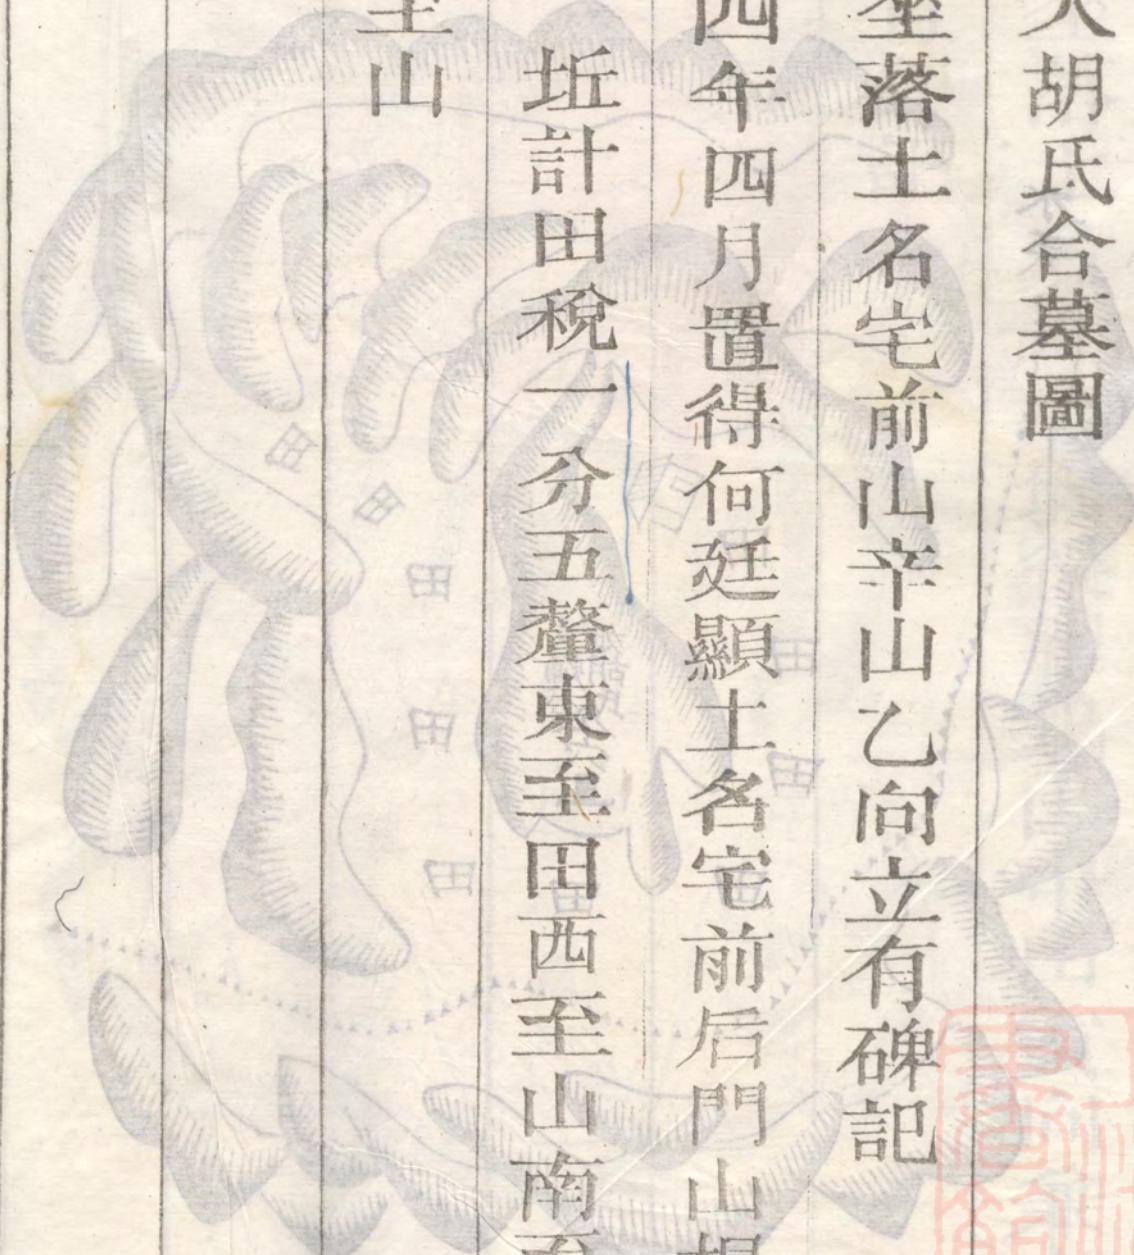 人胡氏合墓圖
坐落土名宅前山辛山乙向立有碑記
四年四月置得何廷顯土名宅前后門山
坵計田稅一分五釐東至田西至山南至
至山